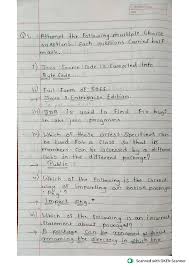 Q1. Attempt the following multiple choice
questions. Each questions carried half
mark.
i) Java Source Code is Compiled into
→ Byte Code.
ii) Full form of J2EE
→ Java 2 Enterprise Edition
iii) JDB is used to Find & fix bugs
in the java programs.
iv) Which of these access Specifiers can
be used for a class so that its
members can be accessed by a different
class in the different package?
→ Public
v) Which of the following is the correct
way of importing an entire package
"Pkg"
→ Import Pkg.*
vi) Which of the following is an incorrect
Statement about package?
→ A package can be renamed without
renaming the directory in which the
Scanned with OKEN Scanner